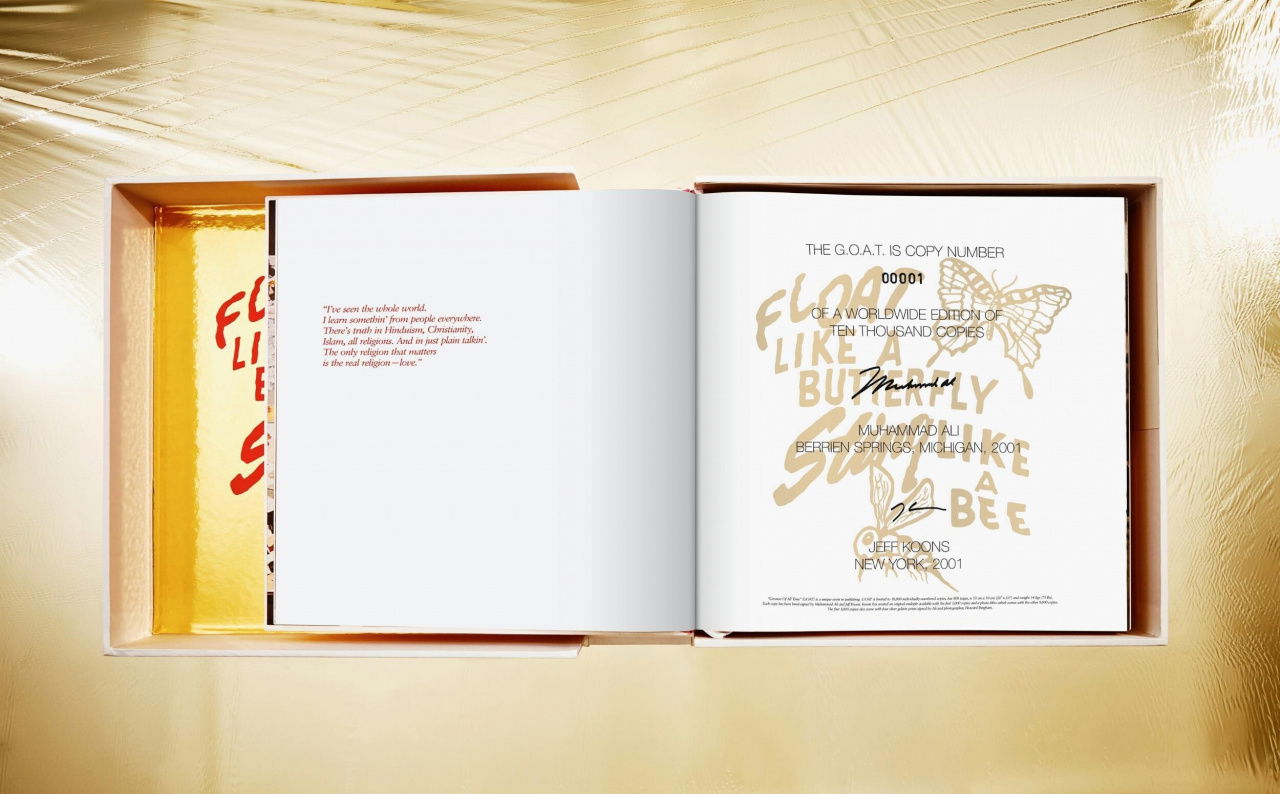 FL
LI
B
S
“I’ve seen the whole world.
I learn somethin’ from people everywhere.
There’s truth in Hinduism, Christianity,
Islam, all religions. And in just plain talkin’.
The only religion that matters
is the real religion – love.”
THE G.O.A.T. IS COPY NUMBER
00001
OF A WORLDWIDE EDITION OF
TEN THOUSAND COPIES
FLOAT
LIKE A
BUTTERFLY
Sting LIKE
A
BEE
Muhammad Ali
MUHAMMAD ALI
BERRIEN SPRINGS, MICHIGAN, 2001
JEFF KOONS
NEW YORK, 2001